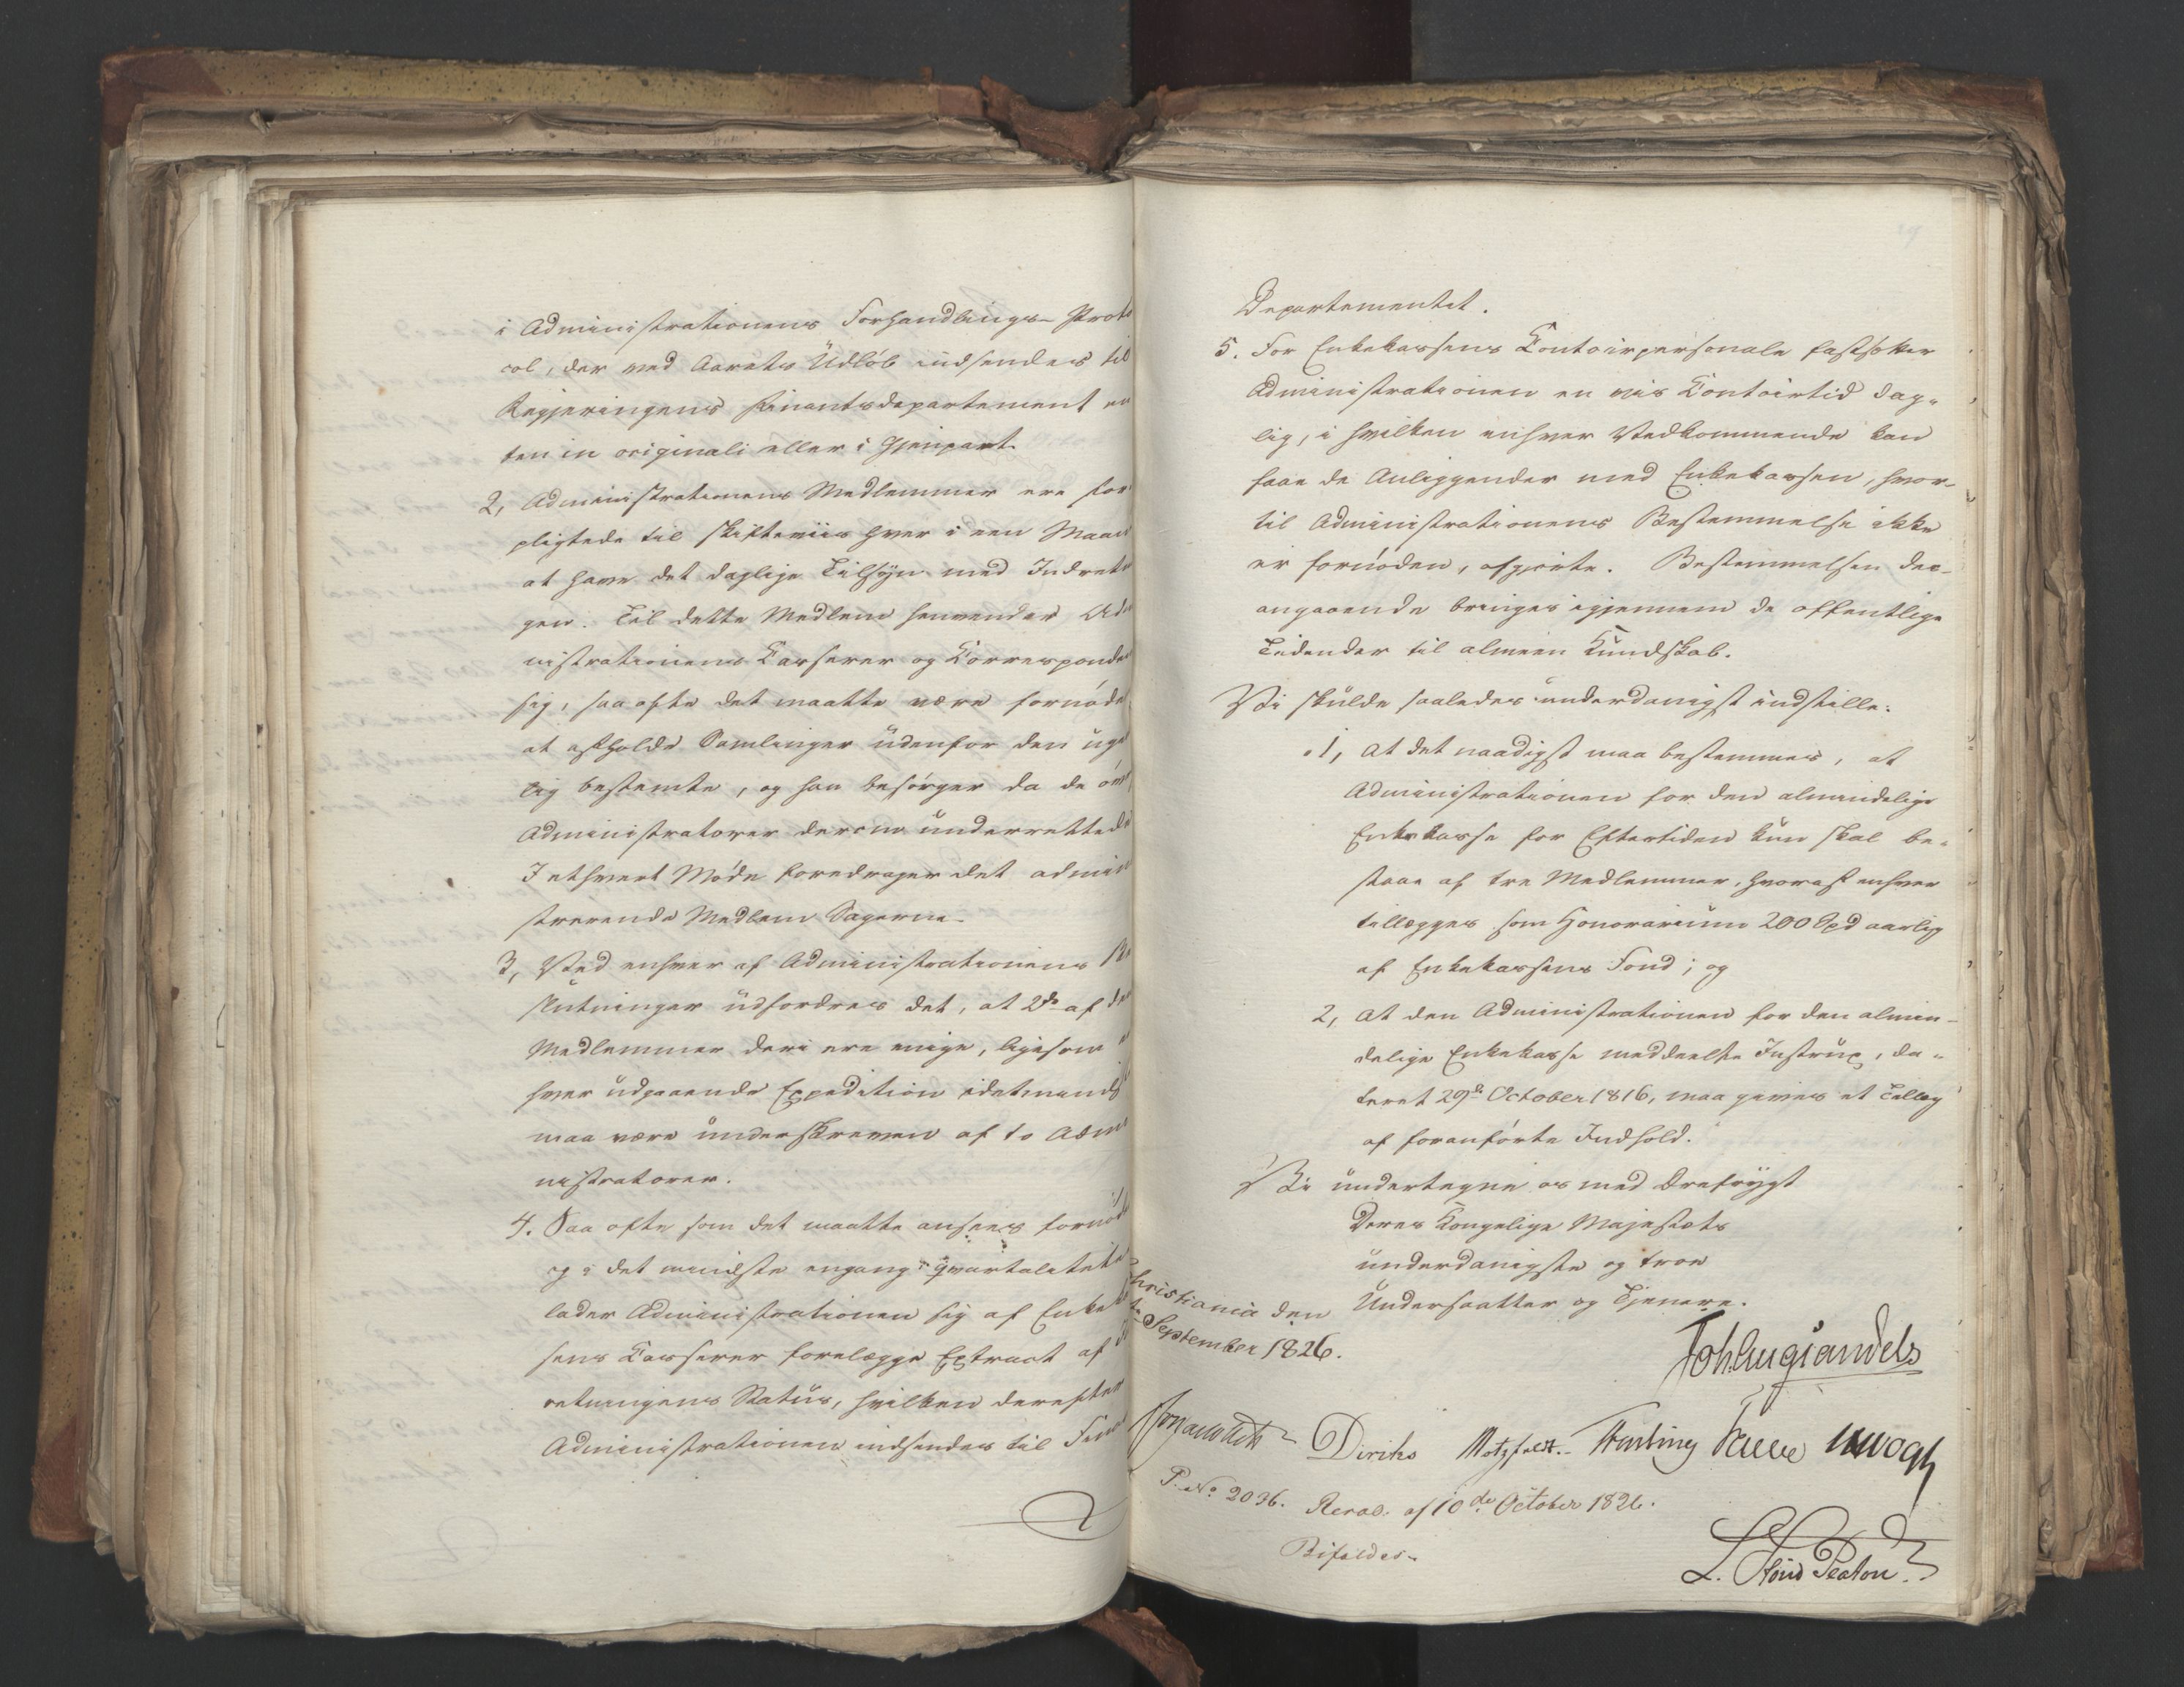 i Administrationens Forhandlings-Proto
col, der ved Aarets Udløb indsendes til
Regjeringens Finantsdepartement en
ten in originali eller i Gjenpart.
2, Administrationens Medlemmer ere for
pligtede til skifteviis hver i een Maan
at have det daglige Tilsyn med Indretn
gen. Til dette Medlem henvender Ad
nistrationens Casserer og Correspondent
sig, saa ofte det maatte være fornøde
at afholde Samlinger udenfor den uge
lig bestemte, og han besørger da de øv
Administratorer derom underrettede
I ethvert Møde foredrager det admini
strerende Medlem Sagerne.
3, Ved enhver af Administrationens Be
slutninger udfordres det, at 2de af dens
Medlemmer deri ere enige, ligesom
hver udgaaende Expedition idetmindst
maa være underskreven af to Admi
nistratorer.
4. Saa ofte som det maatte ansees fornød
og i det mindste engang i Qvartalet
lader Administrationen sig af Enkekas
sens Casserer forelægge Extract af
retningens Status, hvilken derefter
Administrationen indsendes til Finan
19
Departementet.
5. For Enkekassens Contoirpersonale fastsætter
Administrationen en vis Contoirtid dag-
lig, i hvilken enhver Vedkommende kan
faae de Anliggender med Enkekassen, hvor-
til Administrationens Bestemmelse ikke
er fornøden, afgjorte. Bestemmelsen der-
angaaende bringes igjennem de offentlige
Tidender til almeen Kundskab.
Vi skulde saaledes underdanigst indstille:
1, at det naadigst maa bestemmes, at
Administrationen for den almindelige
Enkekasse for Eftertiden kun skal be-
staae af tre Medlemmer, hvoraf enhver
tillægges som Honorarium 200 Spd aarlig
af Enkekassens Fond; og
2, At den Administrationen for den almin-
delige Enkekasse meddeelte Instrux, da-
teret 29de October 1816, maa gives et Tillæg
af foranførte Indhold.
Vi undertegne os med Ærefrygt
Deres Kongelige Majestæts
underdanigste og troe
Undersaatter og Tjenere.
Christiania den
September 1826.
Joh. Aug. Sandels
Jonas Collett
Diriks Motzfeldt. Treschow Fasting Krog
P. No. 2036. Resol. af 10de October 1826.
Bifaldes.